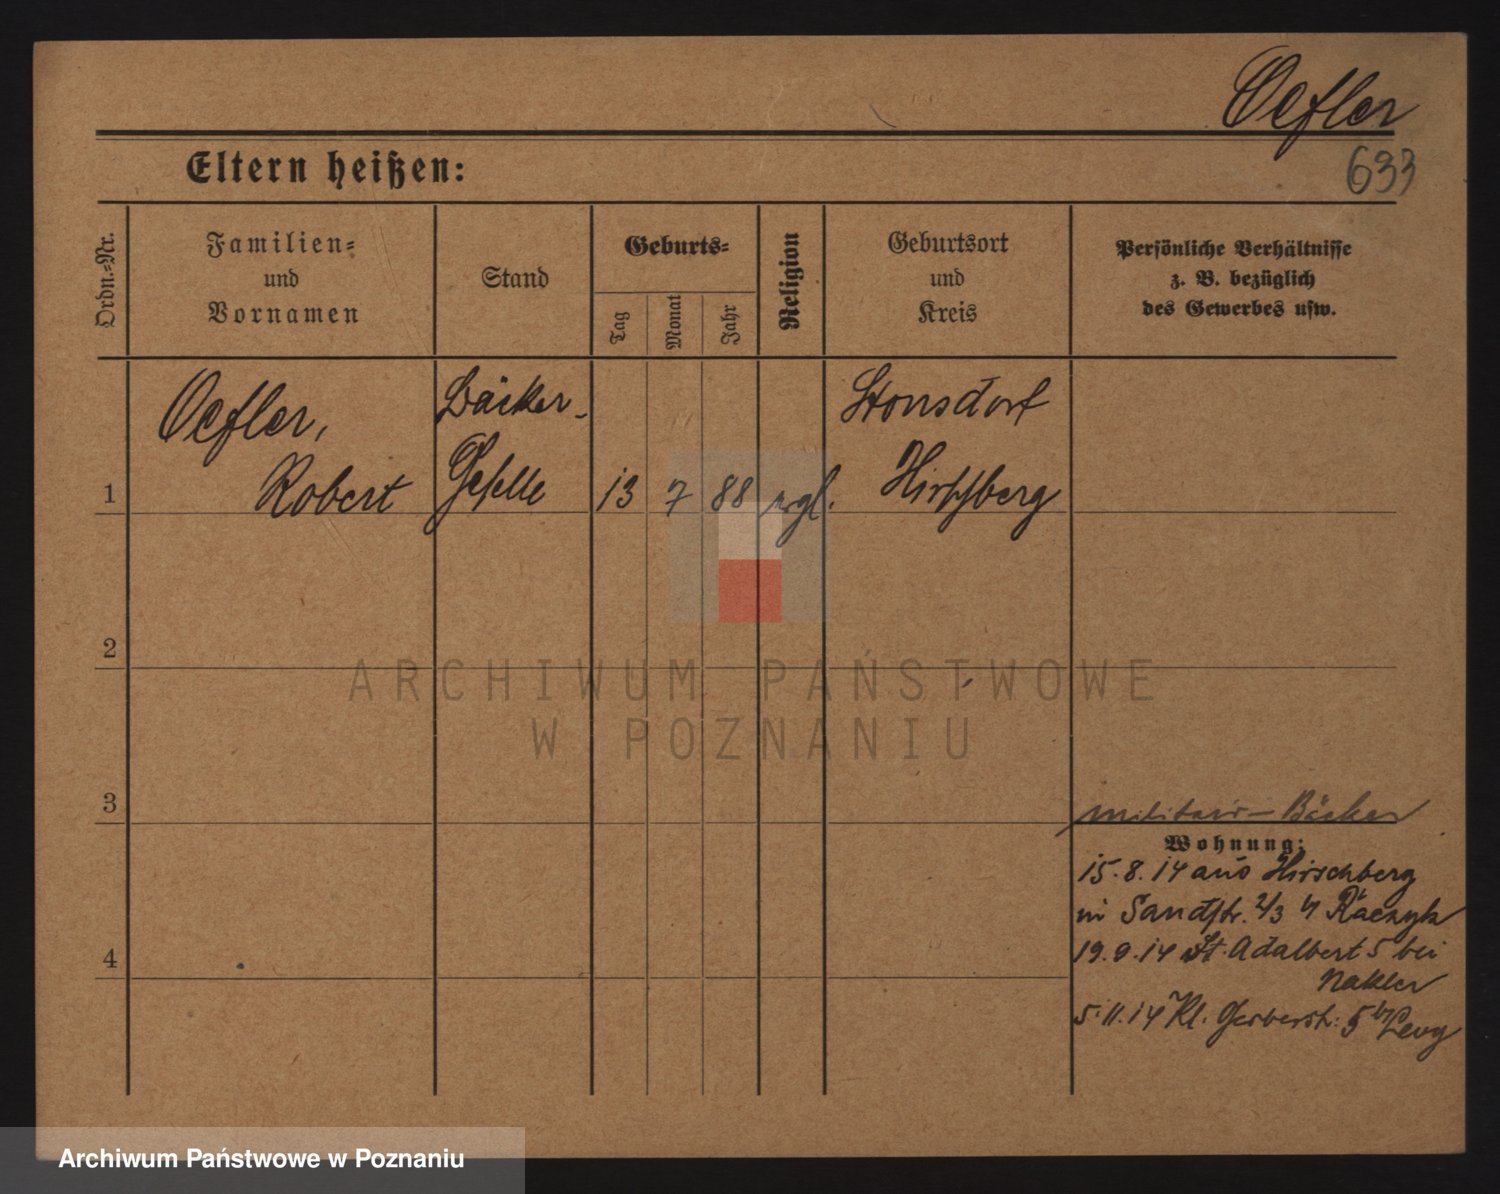 Oefler
Eltern heißen:
633
Ordn.=Nr.
Familien=
und
Vornamen
Stand
Geburts=
Tag
Monat
Jahr
Religion
Geburtsort
und
Kreis
Persönliche Verhältnisse
z. B. bezüglich
des Gewerbes usw.
1
Oefler,
Robert
Bäcker-
Geselle
13
7
88
evgl.
Stonsdorf
Hirschberg
2
3
4
militair-Bäcker
Wohnung:
15.8.14 aus Hirschberg
in Sandstr. 2/3
19.9.14 St. Adalbert 5 bei
Nakler
5.11.14 Kl. Gerberstr. 5 Levy
ARCHIWUM PAŃSTWOWE
W POZNANIU
Archiwum Państwowe w Poznaniu